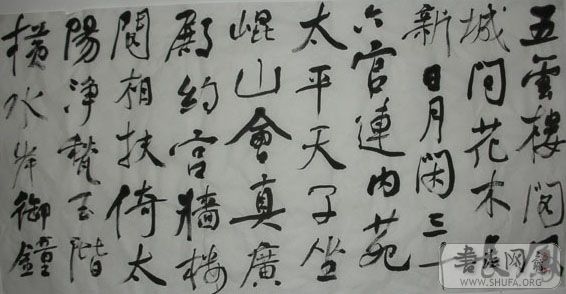 五雲樓閣鳳
城間花木
新日月閑三十
六宮連内苑
太平天子坐
崐山會真廣
殿約宮牆樓
閣相扶倚太
陽淨甃玉階
橫水岸御鐘
书法网
WWW.SHUFA.ORG